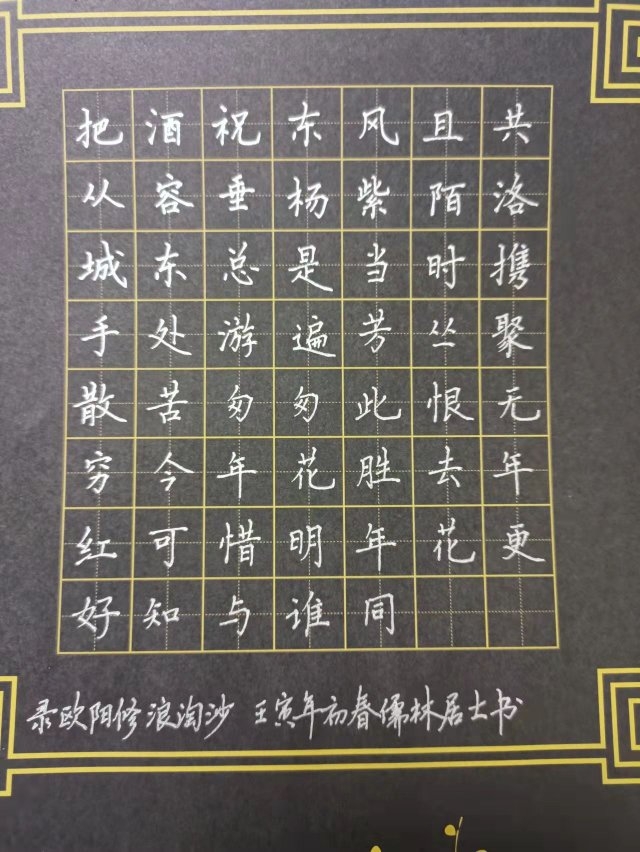 把酒祝东风且共
从容垂杨紫陌洛
城东总是当时携
手处游遍芳丛聚
散苦匆匆此恨无
穷今年花胜去年
红可惜明年花更
好知与谁同
录欧阳修浪淘沙 壬寅年初春儒林居士书